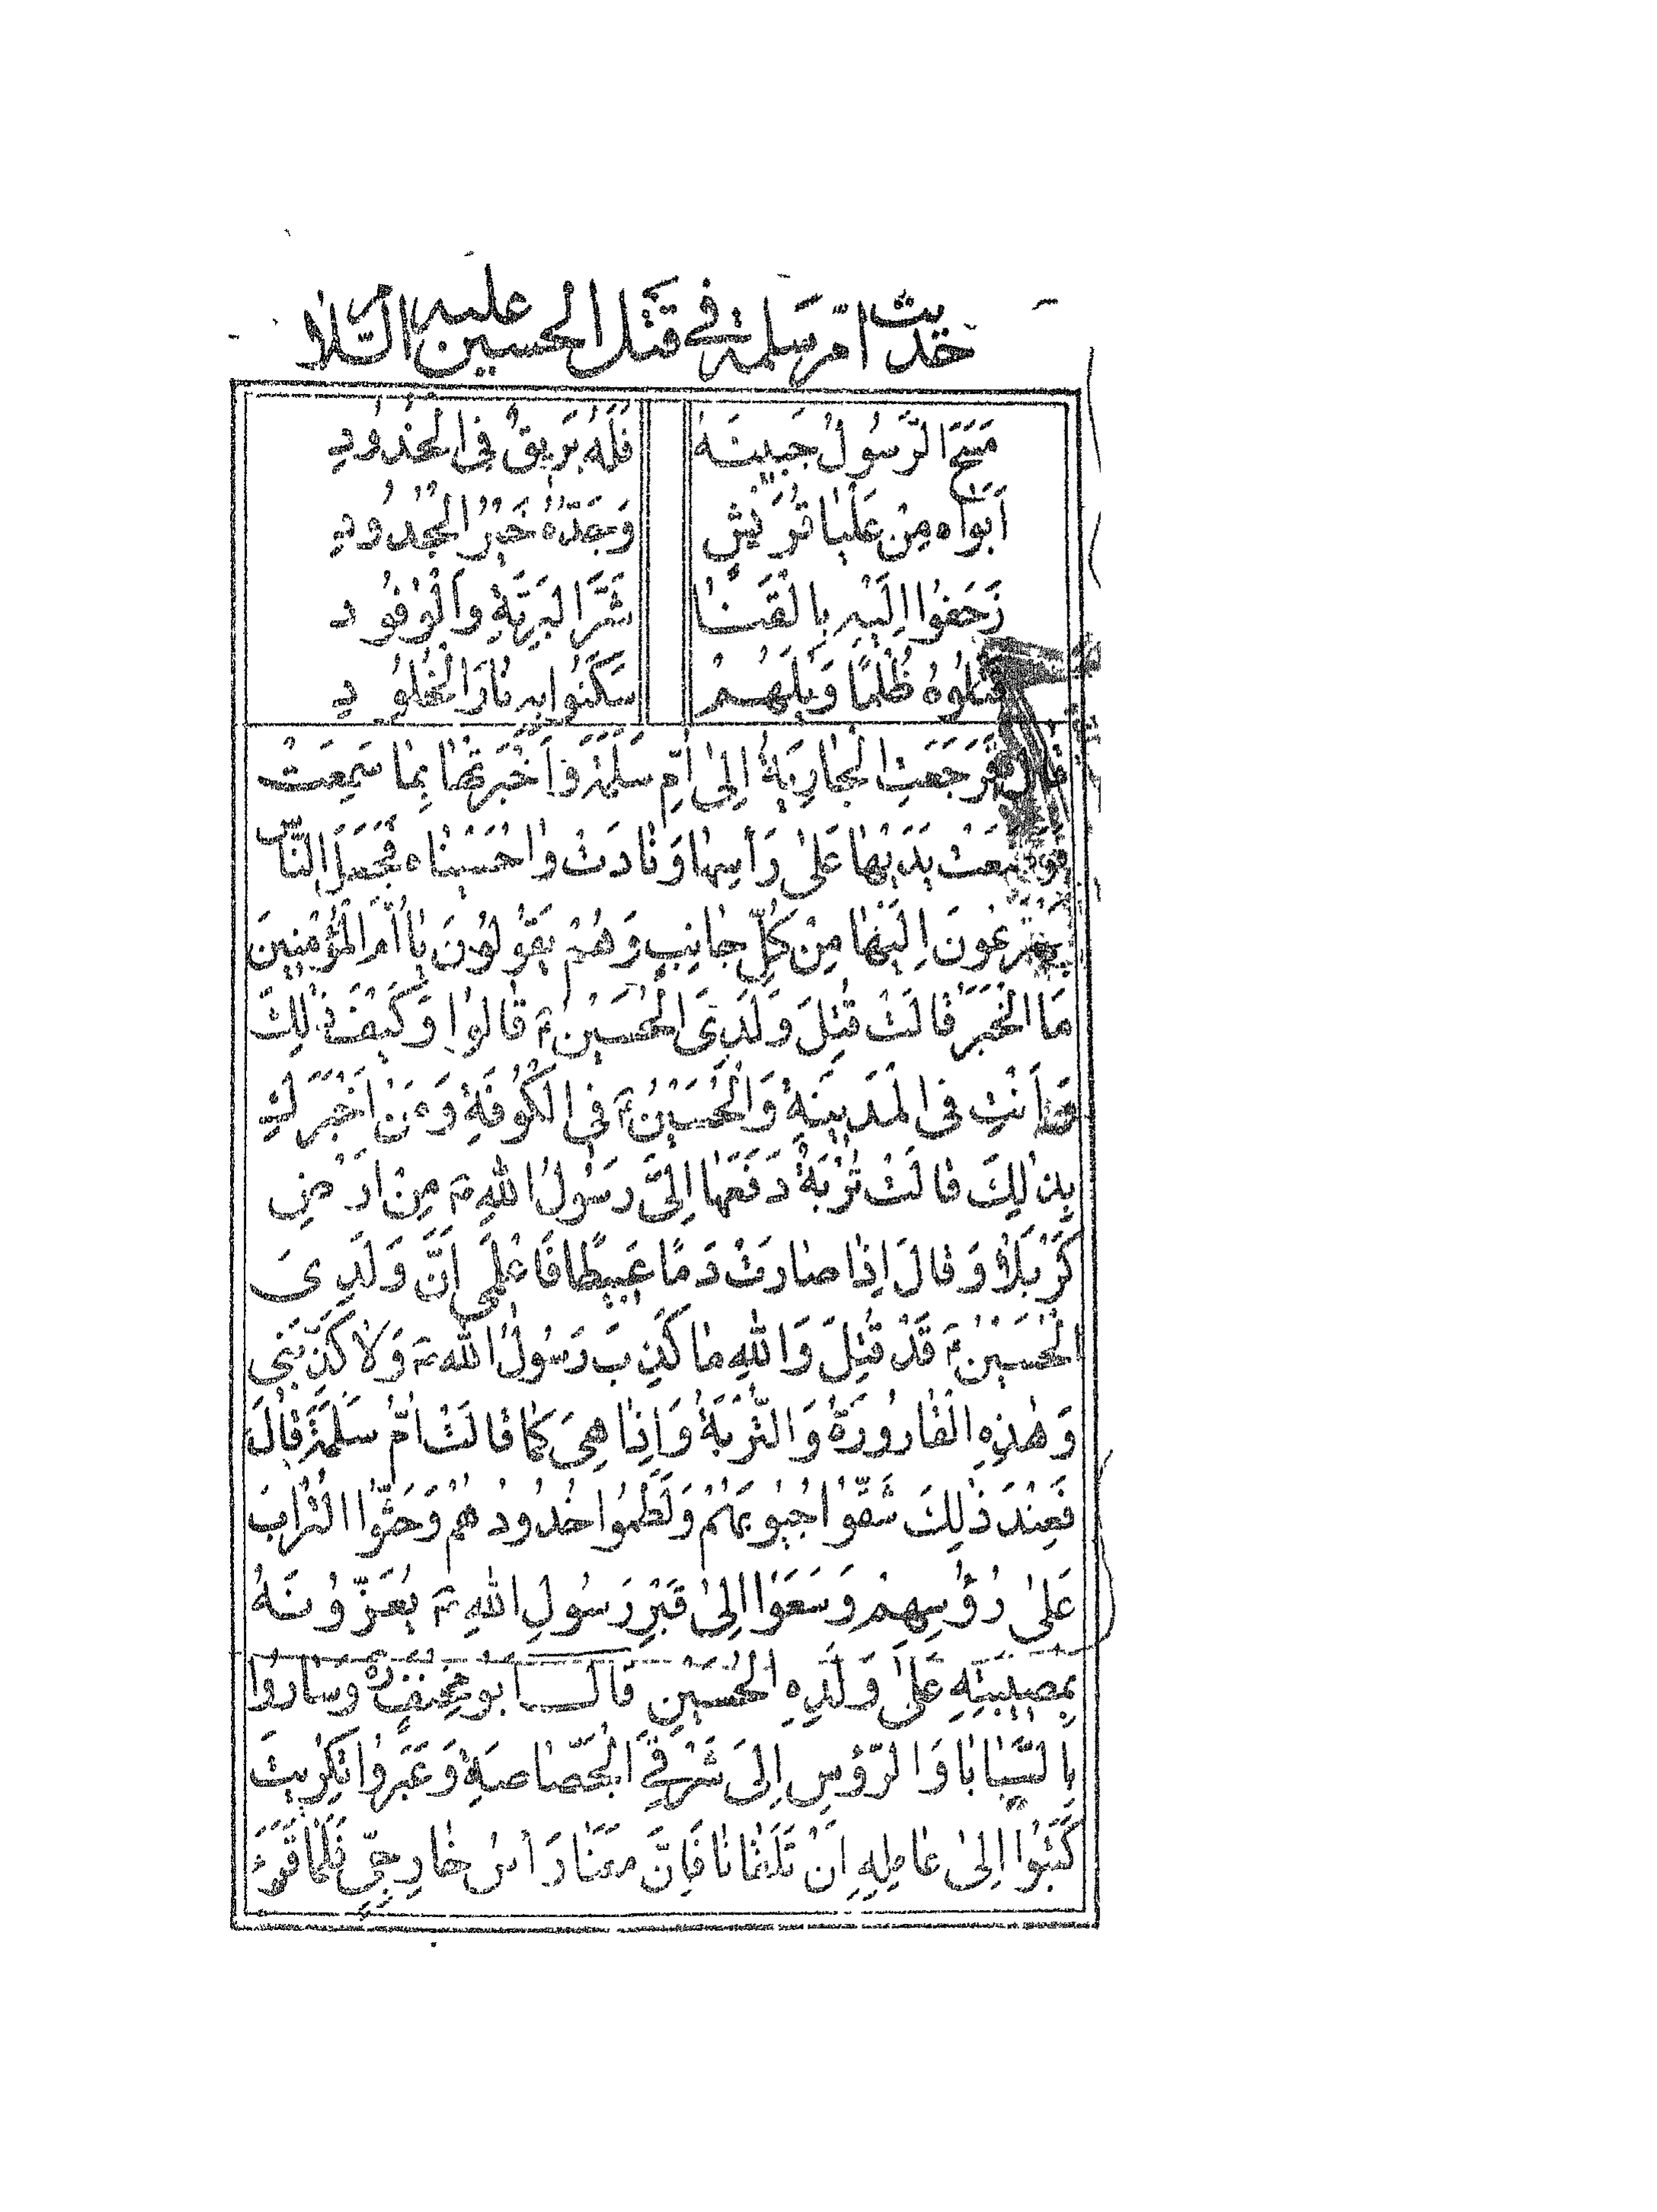 حديث امّ سلمة في قتل الحسين عليه السّلام
مَسَحَ الرَّسُولُ جَبِينَهُ فَلَهُ بَرِيقٌ فِي الْخُدُودِ
أَبَوَاهُ مِنْ عَلْيَا قُرَيْشٍ وَجَدُّهُ خَيْرُ الْجُدُودِ
زَحَفُوا إِلَيْهِ بِالْقَنَا شَرَّ الْبَرِيَّةِ وَالْوُفُودِ
قَتَلُوهُ ظُلْمًا وَيْلَهُمْ سَكَنُوا بِهِ نَارَ الْخُلُودِ
قَالَ فَرَجَعَتِ الْجَارِيَةُ إِلَىٰ أُمِّ سَلَمَةَ وَأَخْبَرَتْهَا بِمَا سَمِعَتْ
فَوَضَعَتْ يَدَيْهَا عَلَىٰ رَأْسِهَا وَنَادَتْ وَاحُسَيْنَاه فَجَعَلَ النَّاسُ
يَهْرَعُونَ إِلَيْهَا مِنْ كُلِّ جَانِبٍ وَهُمْ يَقُولُونَ يَا أُمَّ الْمُؤْمِنِينَ
مَا الْخَبَرُ قَالَتْ قُتِلَ وَلَدِيَ الْحُسَيْنُ ع قَالُوا وَكَيْفَ ذٰلِكَ
وَأَنْتِ فِي الْمَدِينَةِ وَالْحُسَيْنُ ع فِي الْكُوفَةِ وَمَنْ أَخْبَرَكِ
بِذٰلِكَ قَالَتْ تُرْبَةٌ دَفَعَهَا إِلَيَّ رَسُولُ اللهِ ص مِنْ أَرْضِ
كَرْبَلَاءَ وَقَالَ إِذَا صَارَتْ دَمًا عَبِيطًا فَاعْلَمِي أَنَّ وَلَدِيَ
الْحُسَيْنَ ع قَدْ قُتِلَ وَاللهِ مَا كَذِبَ رَسُولُ اللهِ ص وَلَا كَذَّبَنِي
وَهٰذِهِ الْقَارُورَةُ وَالتُّرْبَةُ وَإِذَا هِيَ كَمَا قَالَتْ أُمُّ سَلَمَةَ قَالَ
فَعِنْدَ ذٰلِكَ شَقُّوا جُيُوبَهُمْ وَلَطَمُوا خُدُودَهُمْ وَحَثُّوا التُّرَابَ
عَلَىٰ رُؤُسِهِمْ وَسَعَوْا إِلَىٰ قَبْرِ رَسُولِ اللهِ ص يُعَزُّونَهُ
بِمُصِيبَتِهِ عَلَىٰ وَلَدِهِ الْحُسَيْنِ قَالَ أَبُو مِخْنَفٍ ره وَسَارُوا
بِالسَّبَايَا وَالرُّؤُسِ إِلَىٰ شَرْقِيِّ الْجَصَّاصَةِ وَعَبَرُوا تَكْرِيتَ
كَتَبُوا إِلَىٰ عَامِلِهِ أَنْ تَلَقَّانَا فَإِنَّ مَعَنَا رَأْسُ خَارِجِيٍّ فَلَمَّا قَرَءَ